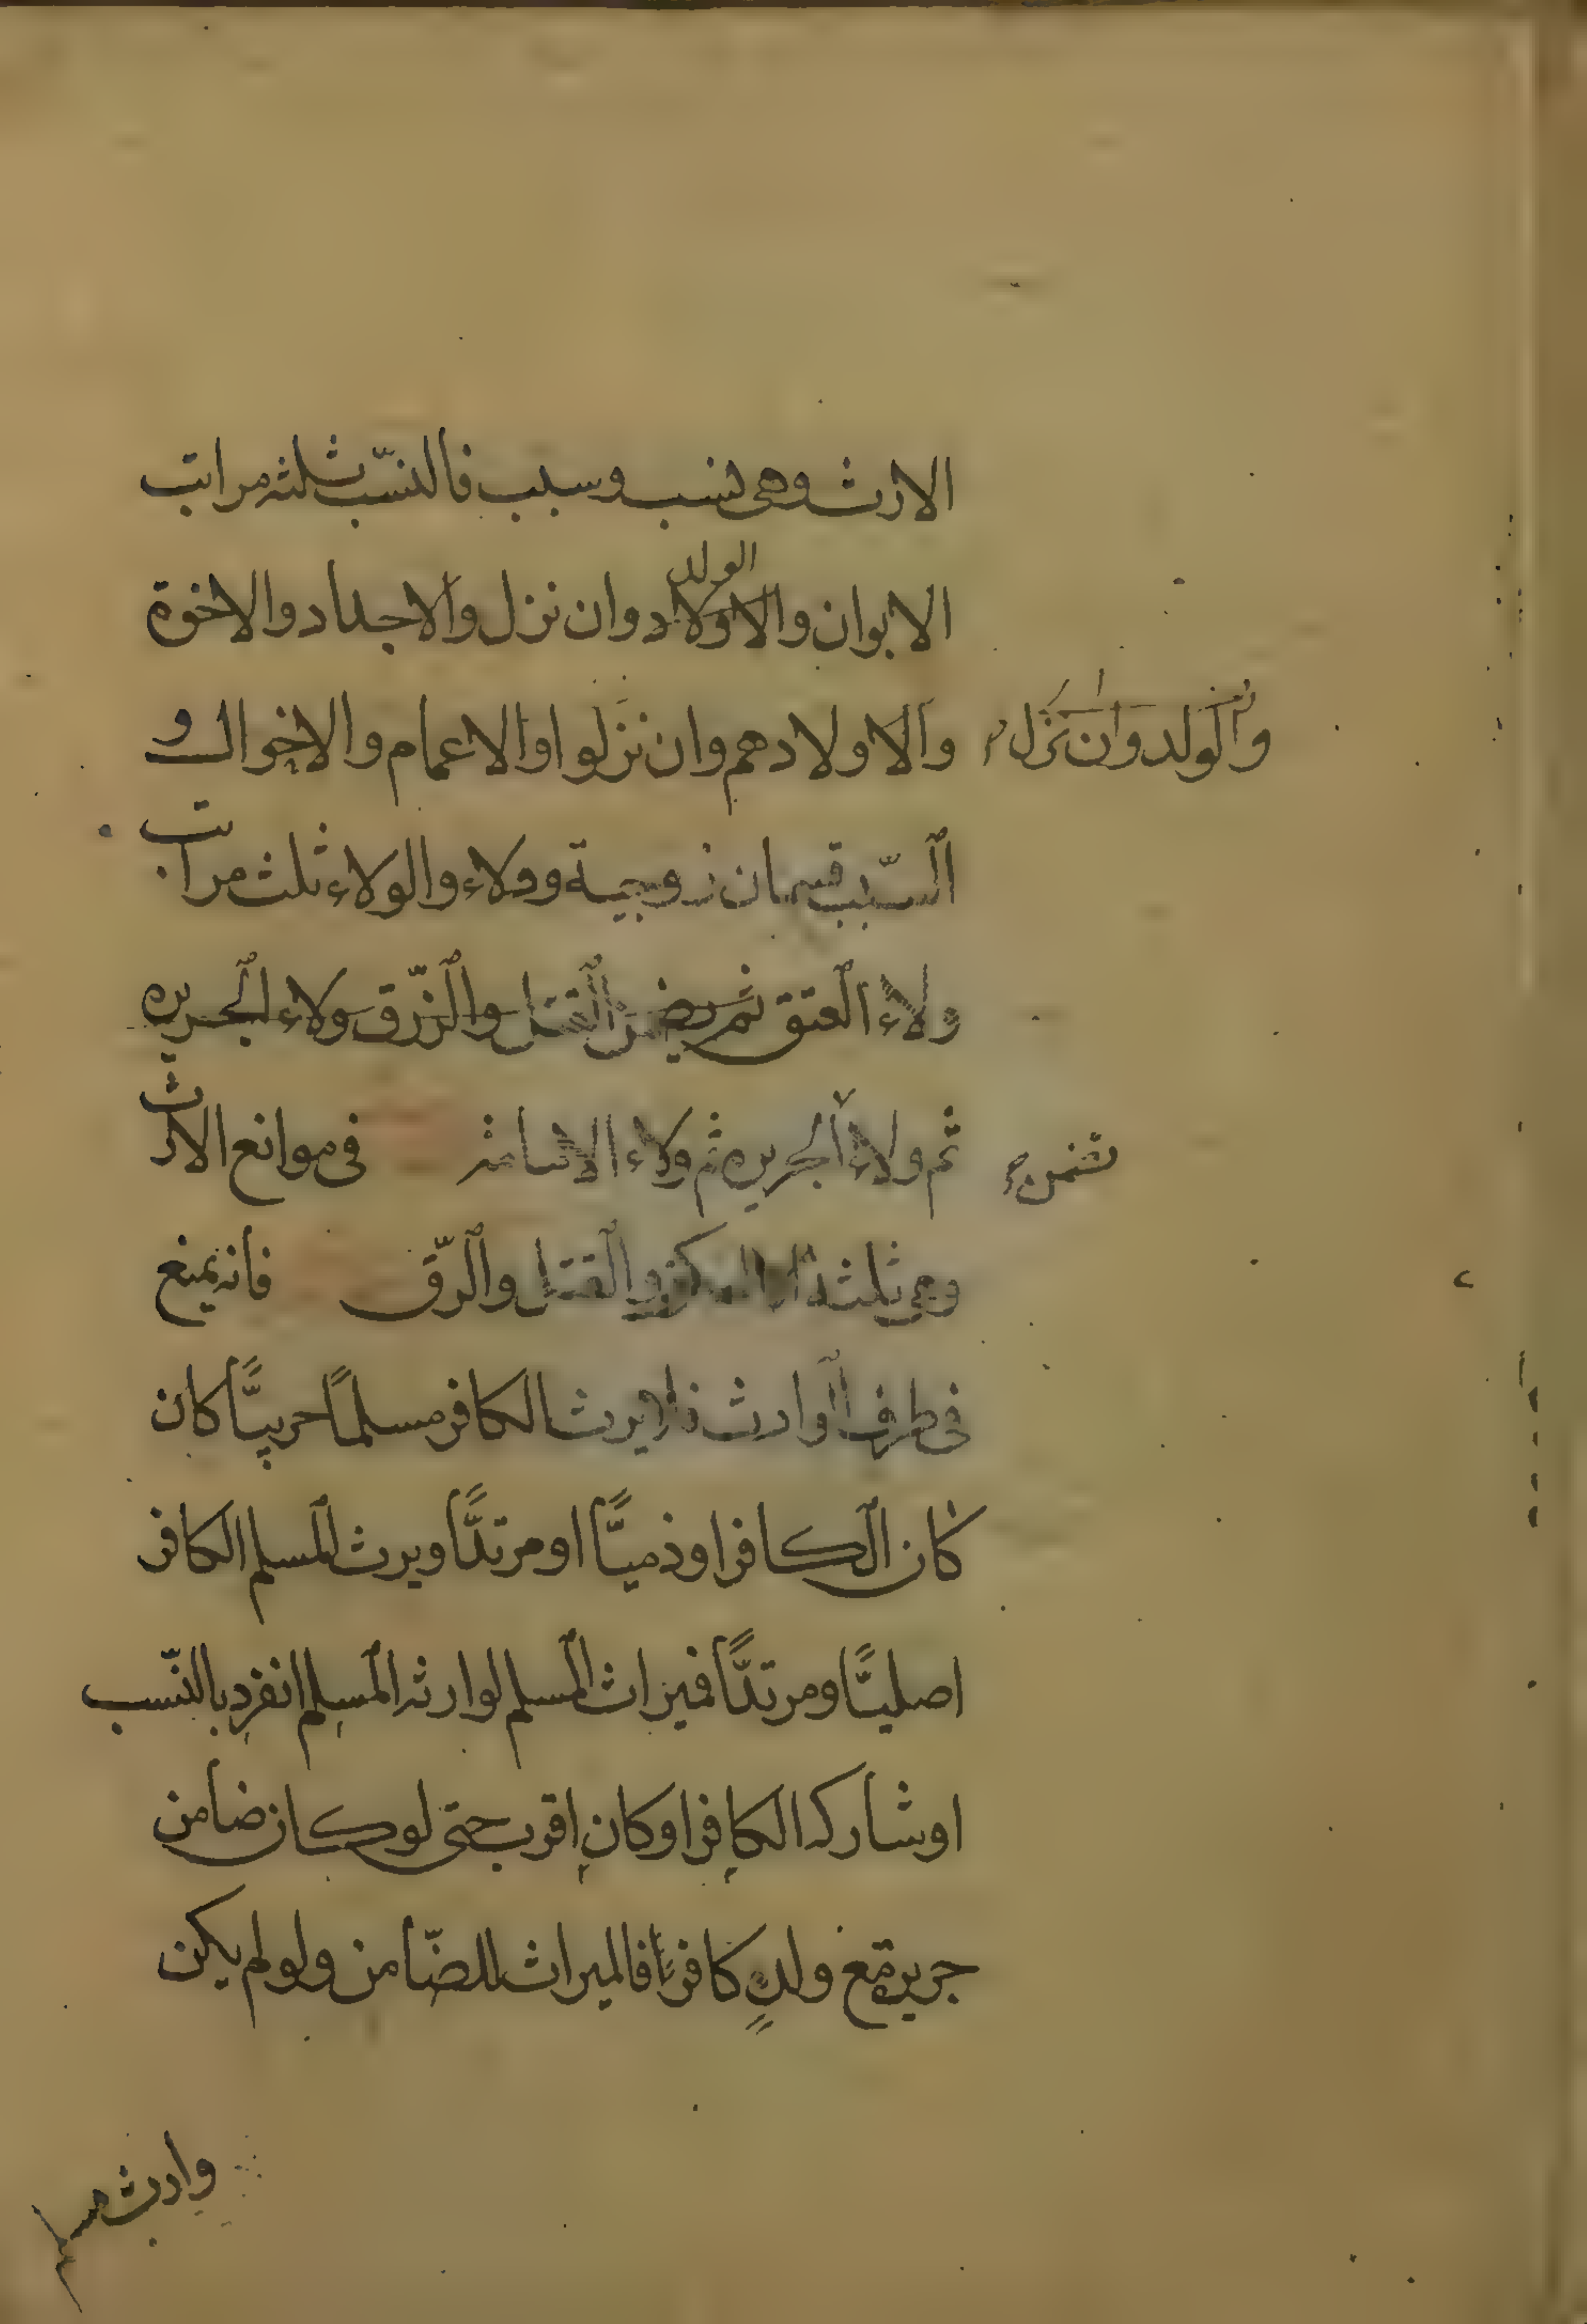 الارث وهى نسب وسبب فالنّسب ثلثه مراتب
الولد
الابوان والاولاد وان نزل والاجداد والاخوة
والولد وان نزل
والاولادهم وان نزلوا والاعمام والاخوال و
السّبب قسمان زوجية وولاء والولاء ثلث مراتب
ولاء العتق ثم القتل والزّرق ولاء الجريره
ثم ولاء الجريره ثم ولاء الامامة فى موانع الارث
وهى ثلثة الكفر والقتل والرّق فانه يمنع
فى طرف الوارث فلا يرث الكافر مسلمًا حربيًّا كان
كان الكافر او ذميًّا او مرتدًّا ويرث المسلم الكافر
اصليًّا ومرتدًّا فميراث المسلم لوارثه المسلم انفرد بالنّسب
او شاركه الكافر او كان اقرب حتى لو كان ضامن
جريرة مع ولدٍ كافرٍ فالميراث للضّامن ولو لم يكن
وارث مسلم